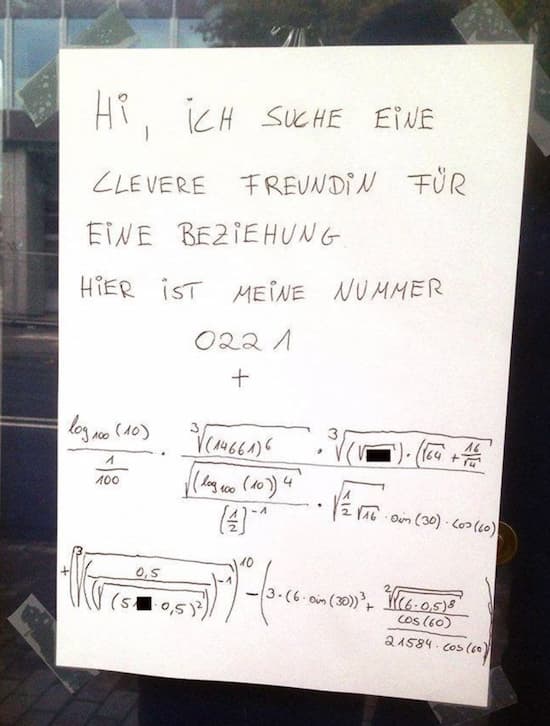 Hi, ICH SUCHE EINE
CLEVERE FREUNDIN FÜR
EINE BEZIEHUNG.
HIER IST MEINE NUMMER
0221
+
log₁₀₀(10) / (1/100) · ∛(14661)⁶ / (√(log₁₀₀(10))⁴ / [1/2]⁻¹) · ∛(√█) · (√64 + 16/√4) / √(1/2 √16 · sin(30) · cos(60))
+ (∛(0,5 / (√(51█ · 0,5)²))⁻¹)¹⁰ − (3 · (6 · sin(30))³ + ²√(√(6 · 0,5)⁸ / cos(60)) / 21584 · cos(60))